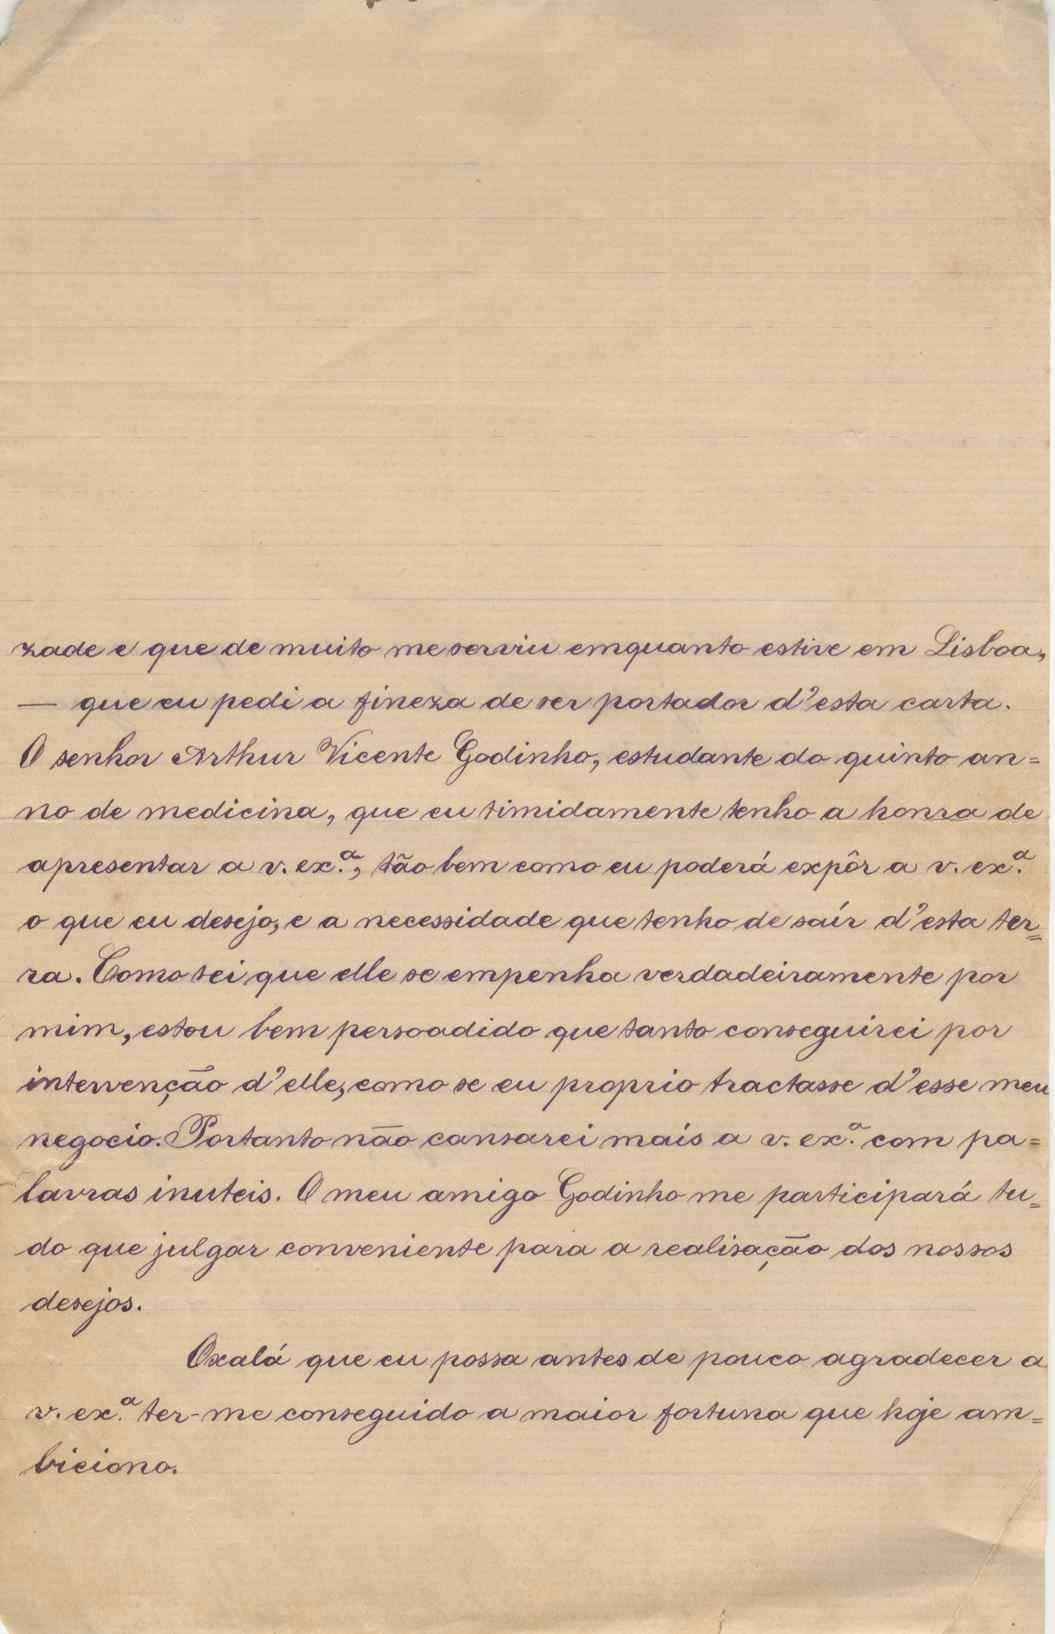 zade e que de muito me serviu emquanto estive em Lisboa,
— que eu pedi a fineza de ser portador d'esta carta.
O senhor Arthur Vicente Godinho, estudante do quinto an=
no de medicina, que eu timidamente tenho a honra de
apresentar a v. ex.ª, tão bem como eu poderá expôr a v. ex.ª
o que eu desejo, e a necessidade que tenho de saír d'esta ter=
ra. Como sei que elle se empenha verdadeiramente por
mim, estou bem persoadido que tanto conseguirei por
intervenção d'elle, como se eu proprio tractasse d'esse meu
negocio. Portanto não cansarei mais a v. ex.ª com pa=
lavras inuteis. O meu amigo Godinho me participará tu=
do que julgar conveniente para a realisação dos nossos
desejos.
Oxalá que eu possa antes de pouco agradecer a
v. ex.ª ter-me conseguido a maior fortuna que hoje am=
biciono.